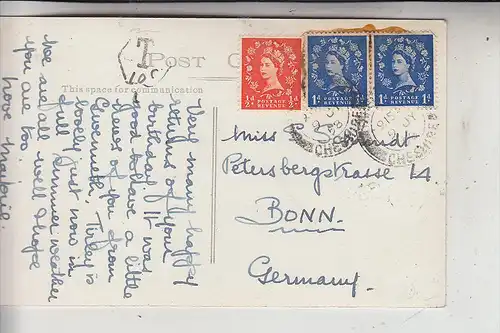 T
10c
POST
This space for communication
Very many happy
returns of your
birthday. It was
good to have a little
news of you from
Gwenneth. Tinley is
lovely just now in
full summer weather
We are all well & hope
you are too.
Love Marjorie.
½d POSTAGE REVENUE ½d
1d POSTAGE REVENUE 1d
1d POSTAGE REVENUE 1d
CHESHIRE
CHESHIRE
Miss
Petersbergstrasse 14
BONN.
Germany.